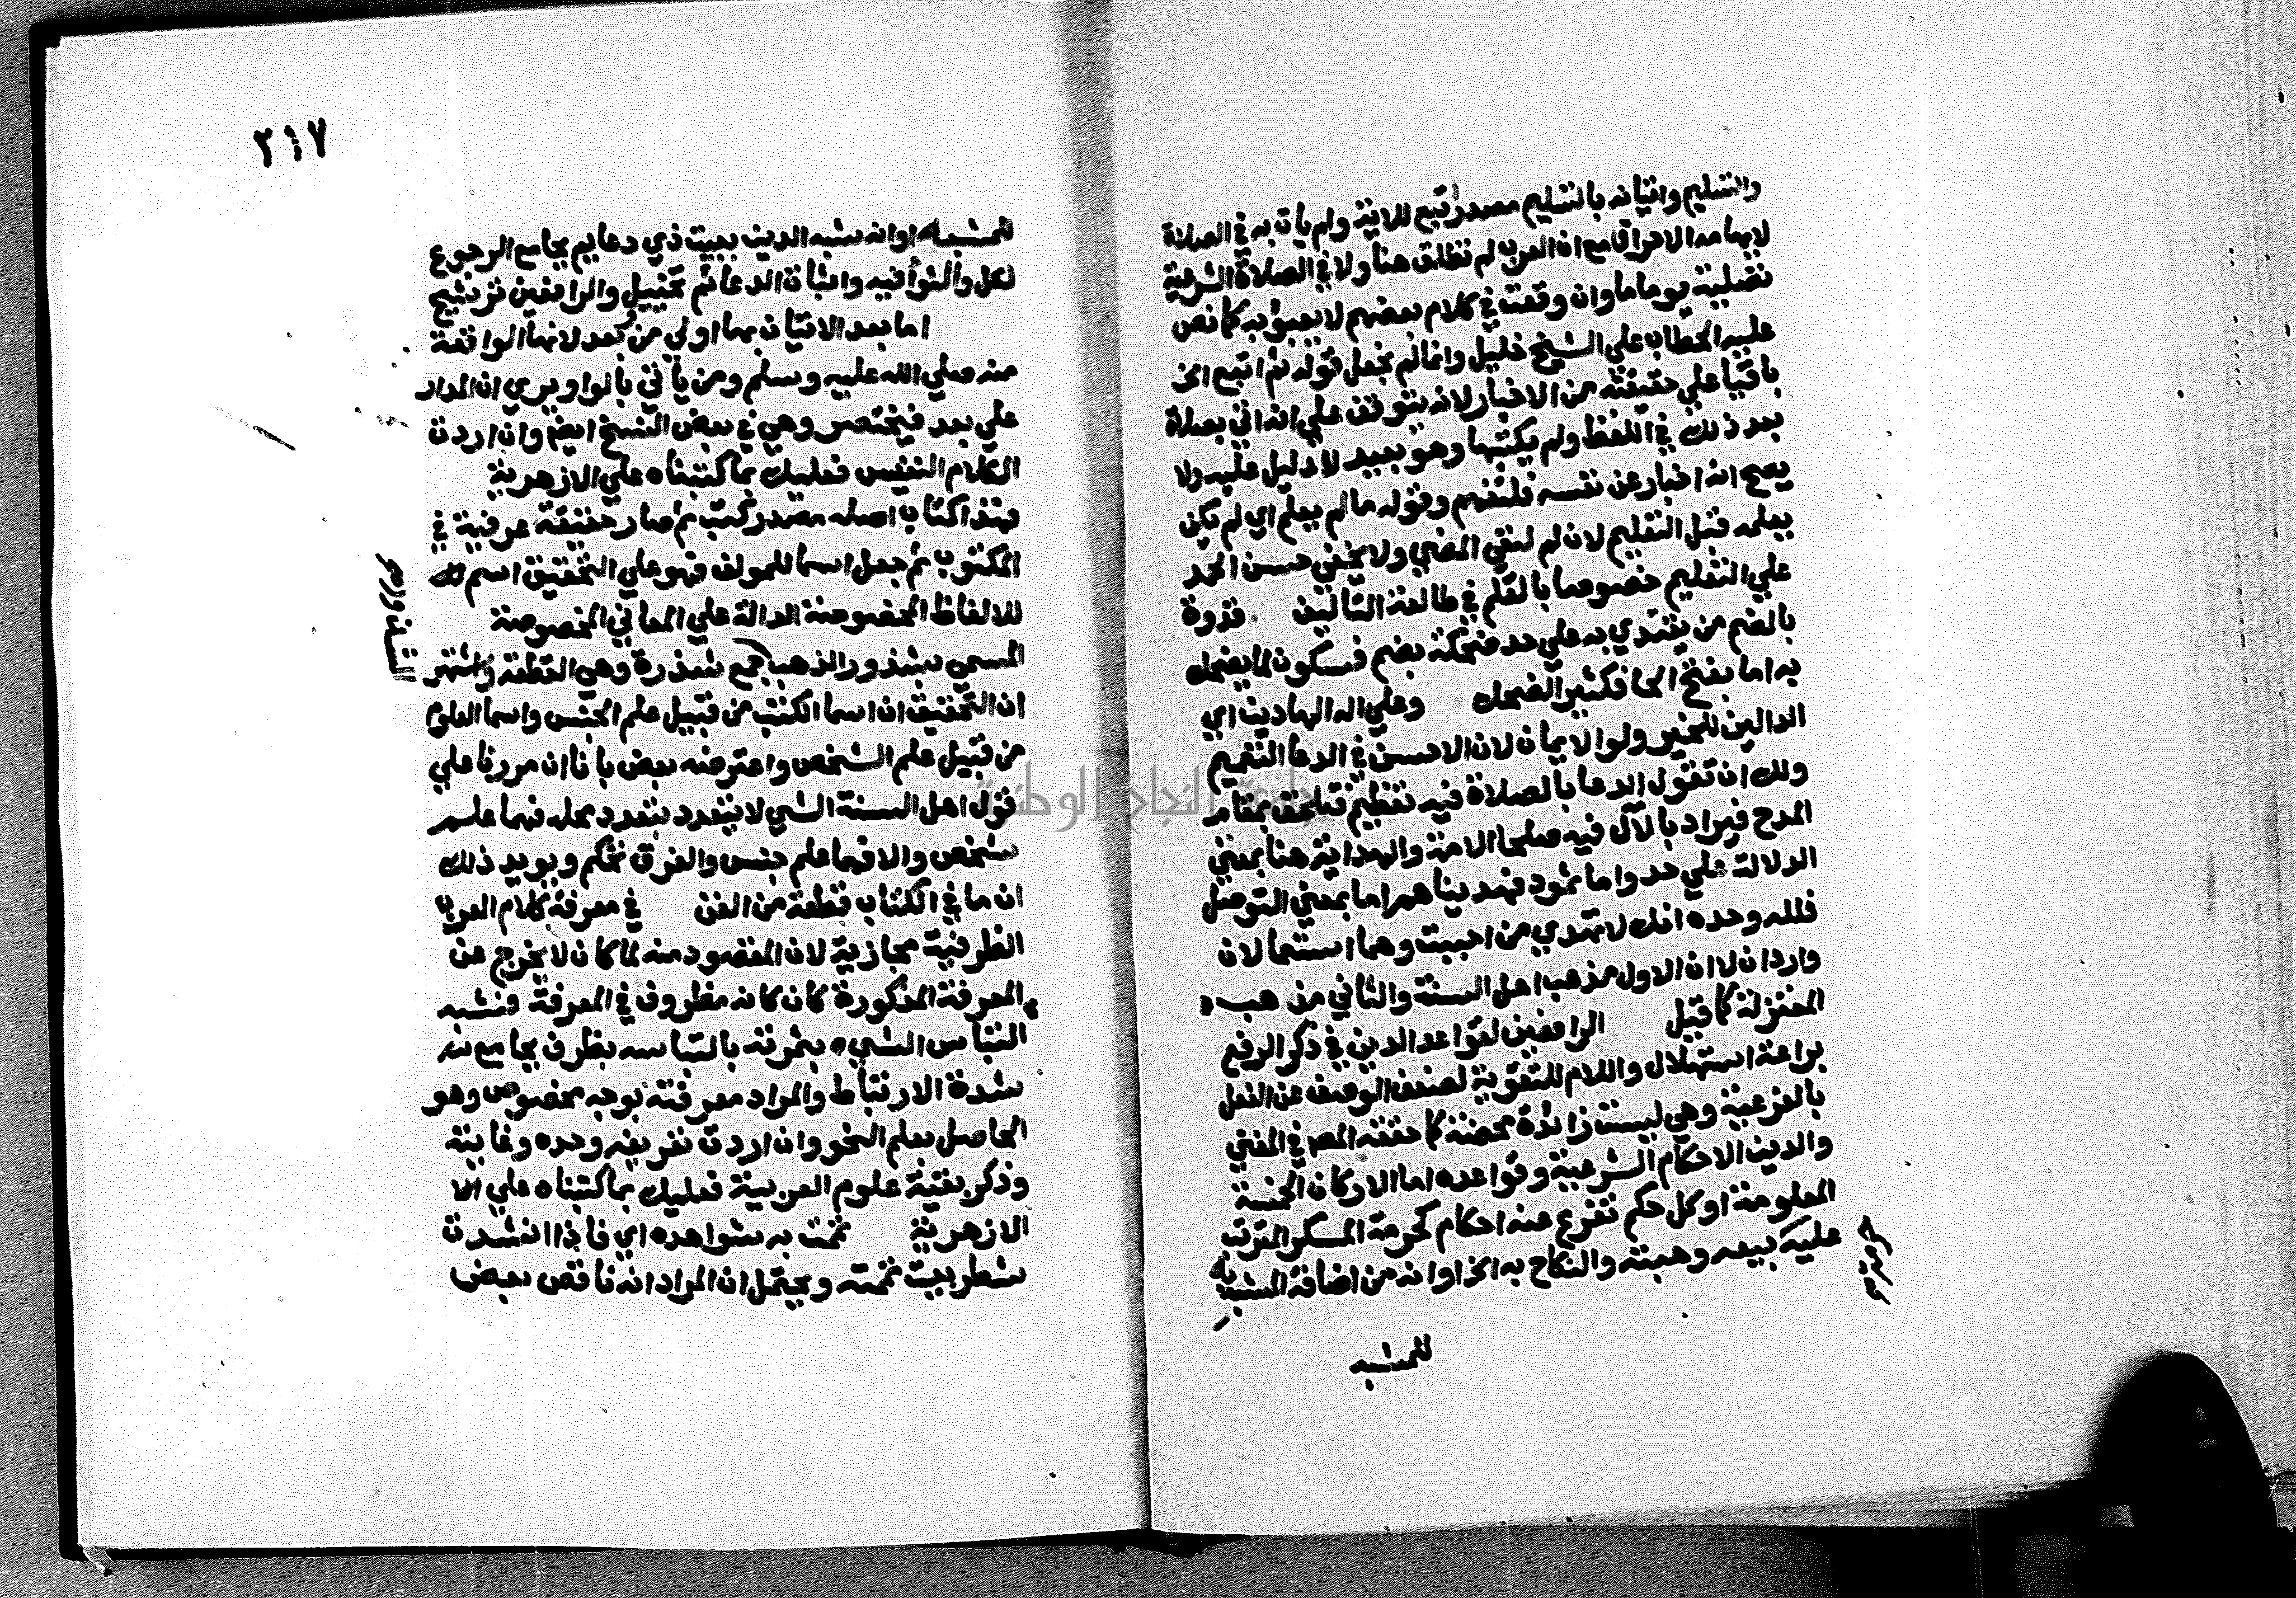 والتسليم واتيانه بالتسليم مصدر اتبع للاية ولم يات به في الصلاة
لايهامه الاحراق مع ان العرب لم تطلق هنا ولا في الصلاة الشرعية
تصلية يوما ما وان وقعت في كلام بعضهم لا يعبؤ به كما نص
عليه الحطاب علي الشيخ خليل وانما لم يجعل قوله ثم اتبع الخ
باقيا علي حقيقته من الاخبار لانه يتوقف علي انه اتي بصلاة
بعد ذلك في اللفظ ولم يكتبها وهو بعيد لا دليل عليه ولا
يصح انه اخبار عن نفسه فلتفهم وقوله ما لم يعلم اي لم يكن
يعلمه قبل التعليم لان لم لنفي المضي ولا يخفي حسن الحمد
علي التعليم خصوصا بالقلم في طالعة التاليف قدوة
بالضم من يقتدي به علي حد ضحكة بضم فسكون لما يضحك
به اما بفتح الحا فكثير الضحك وعلي اله الهادين اي
الدالين للخير ولو الايمان لان الاحسن في الدعا التعميم
ولك ان تقول الدعا بالصلاة فيه تعظيم فتلحق بمقام
المدح فيراد بالآل فيه صلحا الامة والهداية هنا بمعني
الدلالة علي حد واما ثمود فهديناهم اما بمعني التوصل
فلله وحده انك لا تهدي من احببت وهما استعمالان
واردان لا ان الاول مذهب اهل السنة والثاني مذهب
المعتزلة كما قيل الرافعين لقواعد الدين في ذكر الرفع
براعة استهلال واللام للتقوية لضعف الوصف عن الفعل
بالفرعية وهي ليست زائدة محضة كما حققه المص في المغني
والدين الاحكام الشرعية وقواعده اما الاركان الخمسة
المعلومة او كل حكم تفرع عنه احكام كحرمة المسكر المترتب
عليه كبيعه وهبته والنكاح به الخ او انه من اضافة المشبه به
للمشبه
٢١٧
للمشبه او انه شبه الدين ببيت ذي دعايم بجامع الرجوع
لكل والثوا فيه واثبات الدعائم تخييل والرافعين ترشيح
اما بعد الاتيان بها اولي من وبعد لانها الواقعة
منه صلي الله عليه وسلم ومن ياتي بالواو يري ان المدار
علي بعد فيختصر وهي في بعض النسخ ايضا وان اردت
الكلام النفيس فعليك بما كتبناه علي الازهرية
فهذا كتاب اصله مصدر كتب ثم صار حقيقة عرفية في
المكتوب ثم جعل اسما للمولف فهو علي التحقيق اسم
للالفاظ المخصوصة الدالة علي المعاني المخصوصة
المسمي بشذور الذهب جمع شذرة وهي القطعة واشتهر
ان التحقيق ان اسما الكتب من قبيل علم الجنس واسما العلوم
من قبيل علم الشخص واعترضه بعض بانا ان مررنا علي
قول اهل السنة الشي لا يتعدد بتعدد محله فهما علم
شخص والا فهما علم جنس والفرق تحكم ويويد ذلك
ان ما في الكتاب قطعة من الفن في معرفة كلام العرب
الظرفية مجازية لان المقصود منه لما كان لا يخرج عن
المعرفة المذكورة كان كانه مظروف في المعرفة فشبه
التباس الشيء بثمرته بالتباسه بظرف بجامع
شدة الارتباط والمراد معرفته بوجه مخصوص وهو
الحاصل بعلم النحو وان اردت تعريفه وحده وغايته
وذكر بقية علوم العربية فعليك بما كتبناه علي الا
الازهرية تممت به شواهده اي فاذا انشدت
شطر بيت تممته ويحتمل ان المراد انه ناقص بعض